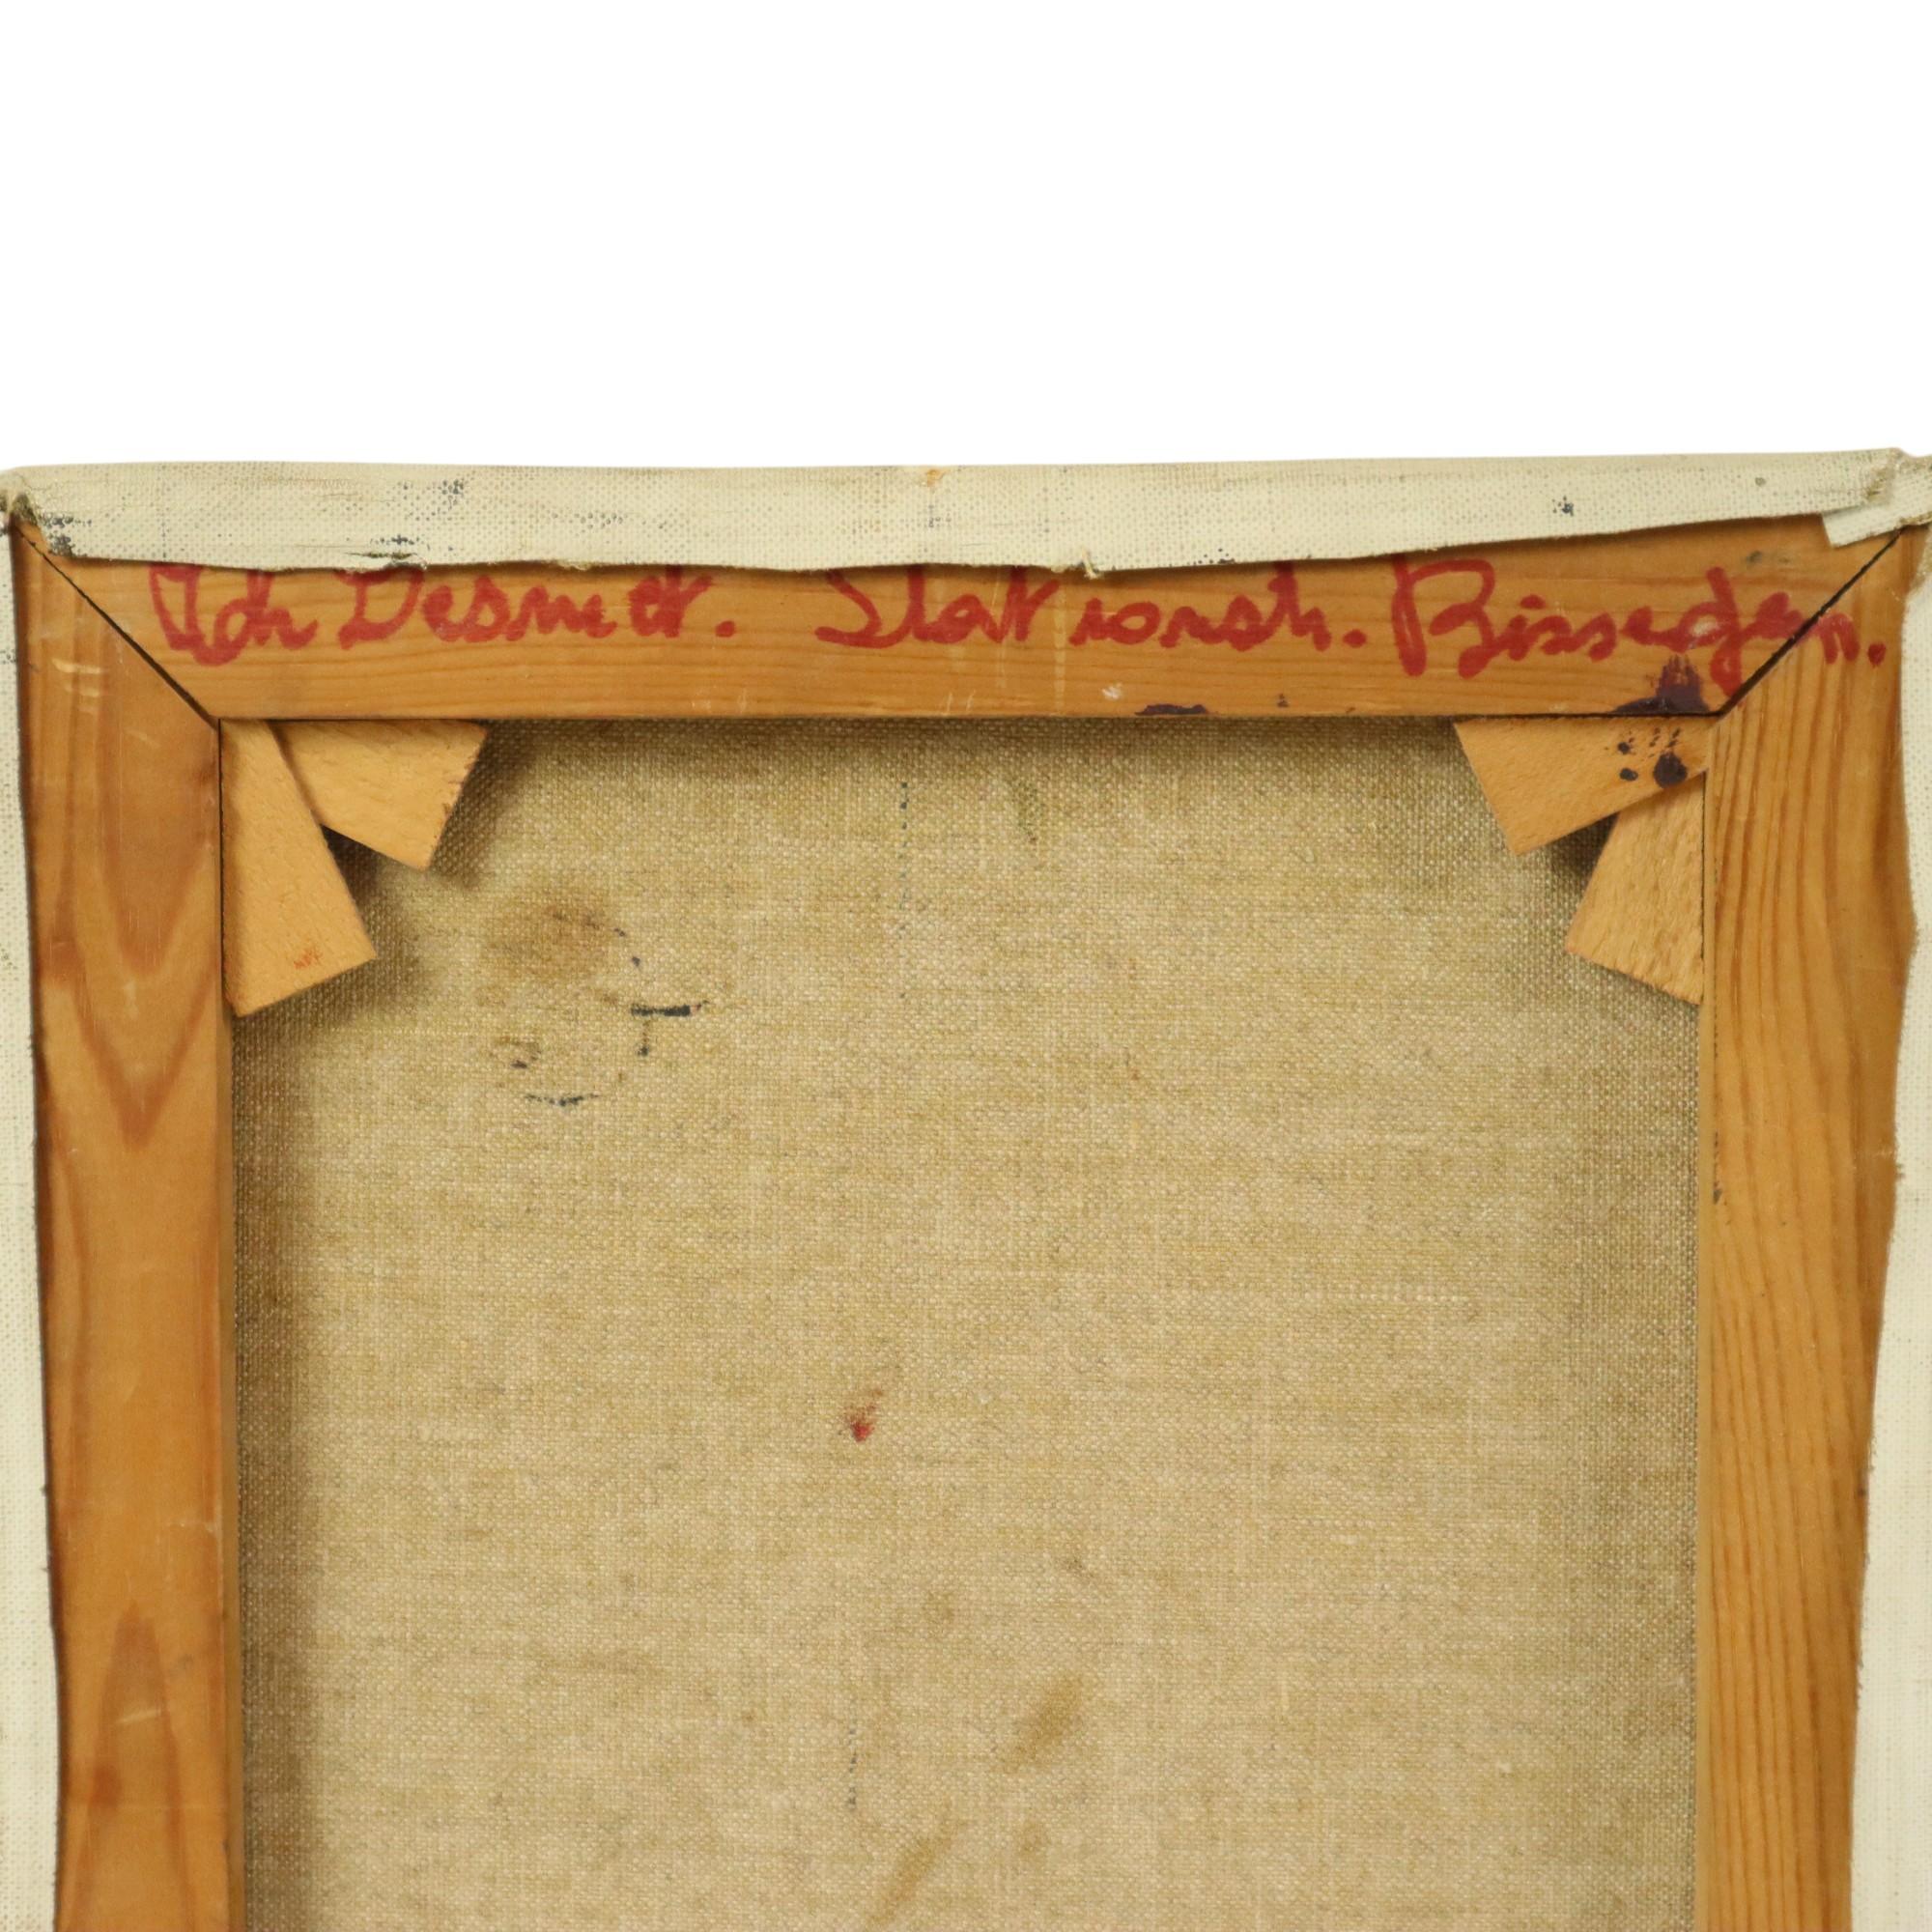 Desmet. Stationstr. Bissegem.